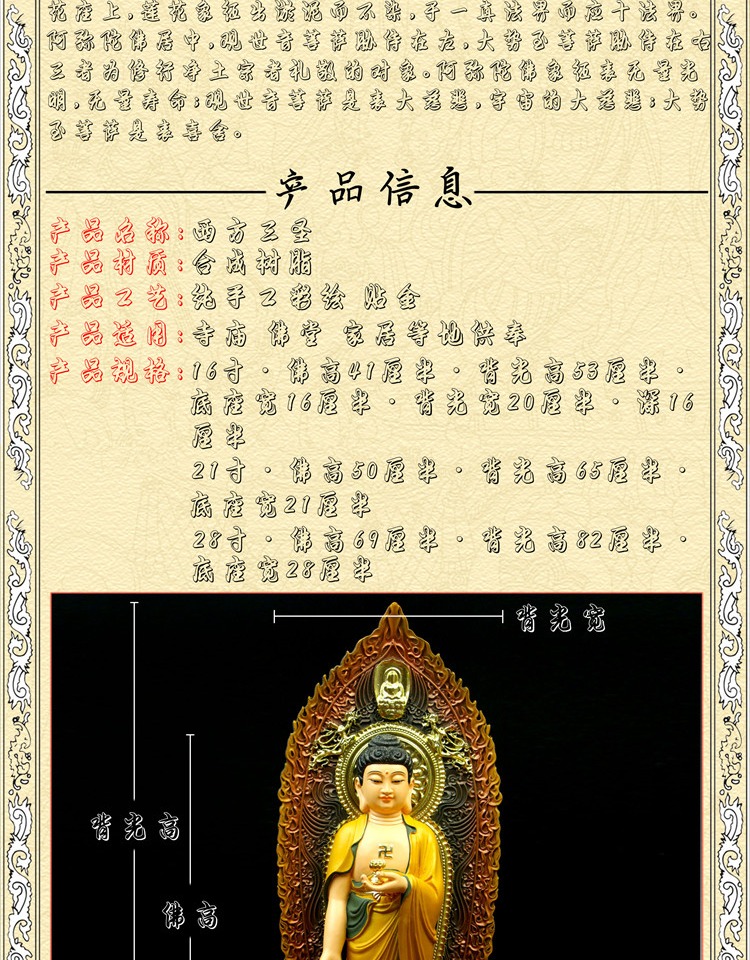 花座上,莲花象征出淤泥而不染,于一真法界而应十法界。
阿弥陀佛居中,观世音菩萨胁侍在左,大势至菩萨胁侍在右
三者为修行净土宗者礼敬的对象。阿弥陀佛象征表无量光
明,无量寿命;观世音菩萨是表大慈悲,宇宙的大慈悲;大势
至菩萨是表喜舍。
产品信息
产品名称:西方三圣
产品材质:合成树脂
产品工艺:纯手工彩绘 贴金
产品适用:寺庙 佛堂 家居等地供奉
产品规格:16寸·佛高41厘米·背光高53厘米·
底座宽16厘米·背光宽20厘米·深16
厘米
21寸·佛高50厘米·背光高65厘米·
底座宽21厘米
28寸·佛高69厘米·背光高82厘米·
底座宽28厘米
背光宽
背光高
佛高